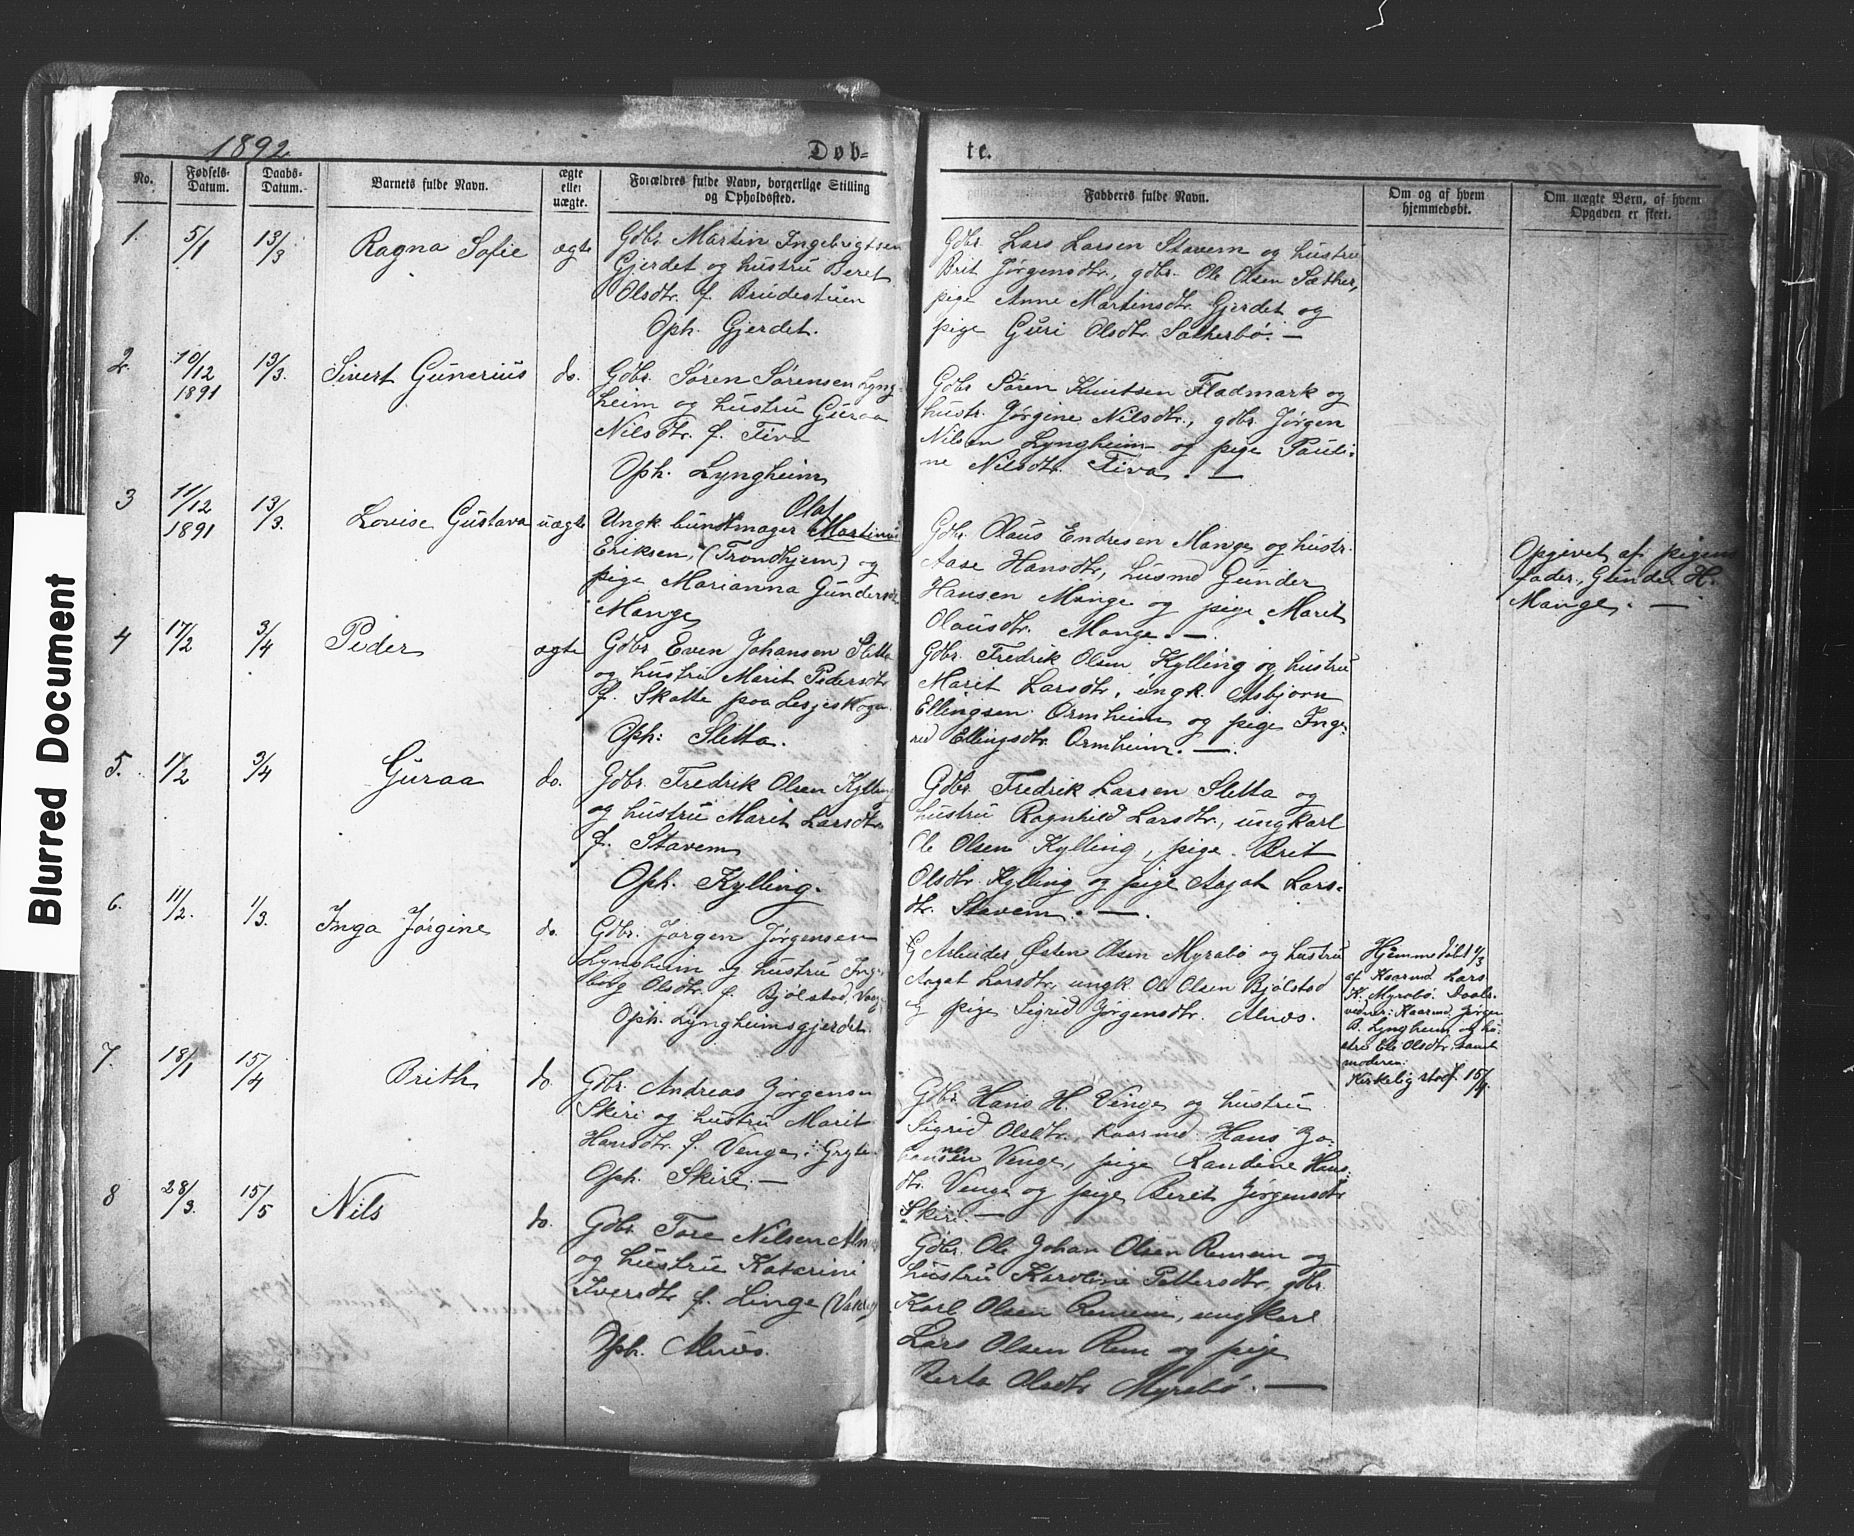 Blurred Document
1892
Døb-
te.
No.
Fødsels-
Datum.
Daabs-
Datum.
Barnets fulde Navn.
ægte
eller
uægte.
Forældres fulde Navn, borgerlige Stilling
og Opholdssted.
Fadderes fulde Navn.
Om og af hvem
hjemmedøbt.
Om uægte Børn, af hvem
Opgaven er skeet.
1.
5/1
13/3
Ragna Sofie
ægte
Gdbr. Martin Ingebrigtsen
Gjerdet og hustru Beret
Olsdtr. f. Brudestuen
Oph. Gjerdet.
Gdbr. Lars Larsen Stavem og hustru
Brit Jørgensdtr., gdbr. Ole Olsen Sæther,
pige Anne Martinsdtr. Gjerdet og
pige Guri Olsdtr. Sætherbø. —
2.
10/12
1891
13/3.
Sivert Gunerius
do.
Gdbr. Søren Sørensen Lyng-
heim og hustru Guraa
Nilsdtr. f. Fiva
Oph. Lyngheim
Gdbr. Søren Knutsen Fladmark og
hustr. Jørgine Nilsdtr., gdbr. Jørgen
Nilsen Lyngheim og pige Pauli-
ne Nilsdtr. Fiva. —
3
11/12
1891
13/3.
Lovise Gustava
uægte
Olaf
Ungk. buntmager Martinus
Eriksen, (Trondhjem) og
pige Marianna Gundersdtr
Mange
Gdbr. Olaus Endresen Mange og hustr.
Aase Hansdtr, husmd Gunder
Hansen Mange og pige Marit
Olausdtr. Mange. —
Opgivet af pigens
fader, Gunder H.
Mange. —
4
17/2
3/4
Peder
ægte
Gdbr. Even Johansen Sletta
og hustru Marit Pedersdtr
f. Skotte paa Lesjeskogn
Oph: Sletta.
Gdbr. Fredrik Olsen Kylling og hustru
Marit Larsdtr, ungk. Asbjørn
Ellingsen Ormheim og pige Inge-
red Ellingsdtr. Ormheim. —
5.
17/2
3/4
Guraa
do.
Gdbr. Fredrik Olsen Kylling
og hustru Marit Larsdtr
f. Stavem
Oph. Kylling.
Gdbr. Fredrik Larsen Sletta og
hustru Ragnhild Larsdtr., ungkarl
Ole Olsen Kylling, pige Brit
Olsdtr. Kylling og pige Aagot Lars-
dtr. Stavem. —
6.
11/2.
1/3.
Inga Jørgine
do.
Gdbr. Jørgen Jørgensen
Lyngheim og hustru Inge-
borg Olsdtr. f. Bjølstad, Vaage
Oph. Lyngheimsgjerdet.
G Arbeider Østen Olsen Myrabø og hustru
Aagot Larsdtr, ungk Ole Olsen Bjølstad
og pige Sigrid Jørgensdtr. Alnæs.
Hjemmedøbt 1/3
af Kaarmd Lars
K. Myrabø. Daabs-
vidner: Kaarmd. Jørgen
B. Lyngheim og hu-
stru Eli Olsdtr. samt
moderen.
Kirkelig stadf. 15/4.
7.
18/1
15/4
Brith
do
Gdbr. Andreas Jørgensen
Skiri og hustru Marit
Hansdtr f. Venge i Gryten
Oph. Skiri. —
Gdbr. Hans H. Venge og hustru
Sigrid Olsdtr. Kaarmd Hans Jo-
hansen Venge, pige Randine Hans-
dtr. Venge og pige Berit Jørgensdtr
Skiri. —
8
28/3.
15/5
Nils
do.
Gdbr. Tore Nilsen Alnæs
og hustru Katrini
Iversdtr f. Linge (Valdal)
Oph. Alnæs.
Gdbr. Ole Johan Olsen Remem og
hustru Karoline Pettersdtr, gdbr.
Karl Olsen Remem, ungkarl
Lars Olsen Rem og pige
Berta Olsdtr Myrabø. —